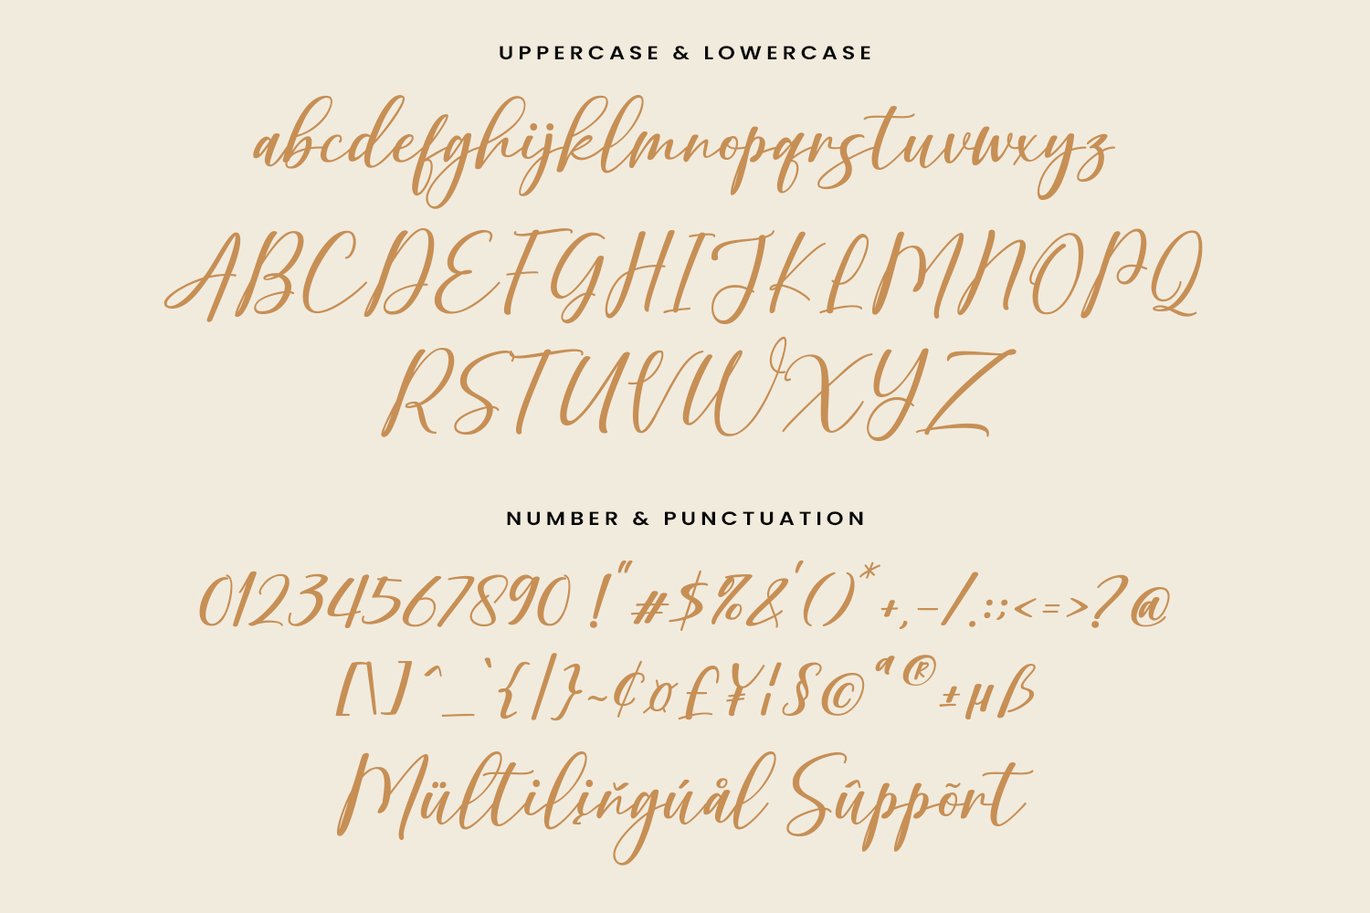 UPPERCASE & LOWERCASE
abcdefghijklmnopqrstuvwxyz
ABCDEFGHIJKLMNOPQ
RSTUVWXYZ
NUMBER & PUNCTUATION
01234567890 !"#$%&'()*+,-/.:;<=>?@
[\]^_`{|}~¢¤£¥¦§©ª®±µß
Mültilįňgúål Sûppõrt